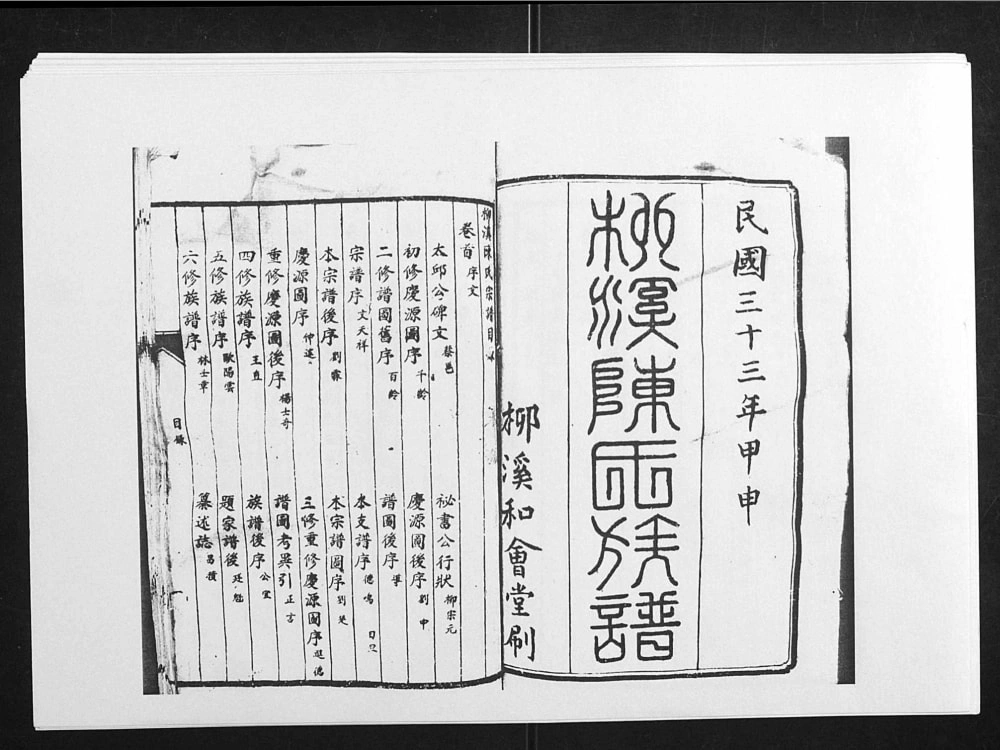 民國三十三年甲申
柳溪陳氏族譜
柳溪和會堂刷
柳溪陳氏宗譜目
卷首 序文
太邱公碑文 蔡邕 祕書公行狀 柳宗元
初修慶源圖序 千齡 慶源圖後序 劉申
二修譜圖舊序 百齡 譜圖後序
宗譜序 文天祥 本支譜序 德鳴
本宗譜後序 劉霖 本宗譜圖序 劉
慶源圖序 仲述 三修重修慶源圖序
重修慶源圖後序 楊士奇 譜圖考異引 正言
四修族譜序 王直 族譜後序 公宜
五修族譜序 歐陽雲 題家譜後
六修族譜序 林士章 纂述誌 昌積
目錄